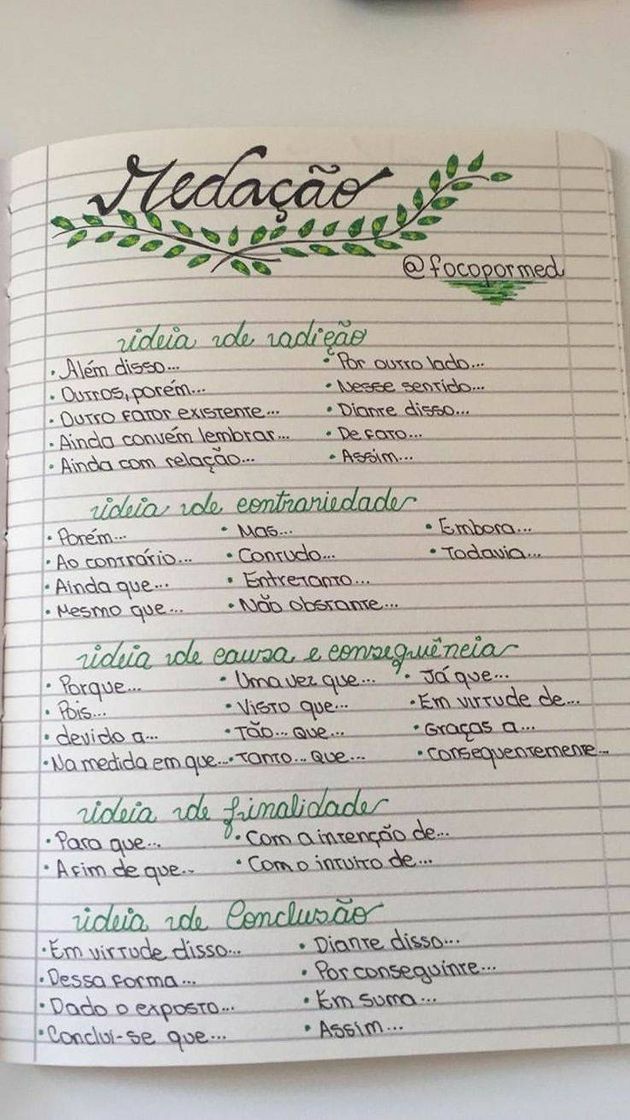 Redação
@focopormed
ideia de adição
• Além disso... • Por outro lado...
• Outros, porém... • Nesse sentido...
• Outro fator existente... • Diante disso...
• Ainda convém lembrar... • De fato...
• Ainda com relação... • Assim...
ideia de contrariedade
• Porém... • Mas... • Embora...
• Ao contrário... • Contudo... • Todavia...
• Ainda que... • Entretanto...
• Mesmo que... • Não obstante...
ideia de causa e consequência
• Porque... • Uma vez que... • Já que...
• Pois... • Visto que... • Em virtude de...
• devido a... • Tão... que... • Graças a...
• Na medida em que... • Tanto... que... • consequentemente...
ideia de finalidade
• Para que... • Com a intenção de...
• Afim de que... • Com o intuito de...
ideia de Conclusão
• Em virtude disso... • Diante disso...
• Dessa forma... • Por conseguinte...
• Dado o exposto... • Em suma...
• Conclui-se que... • Assim...